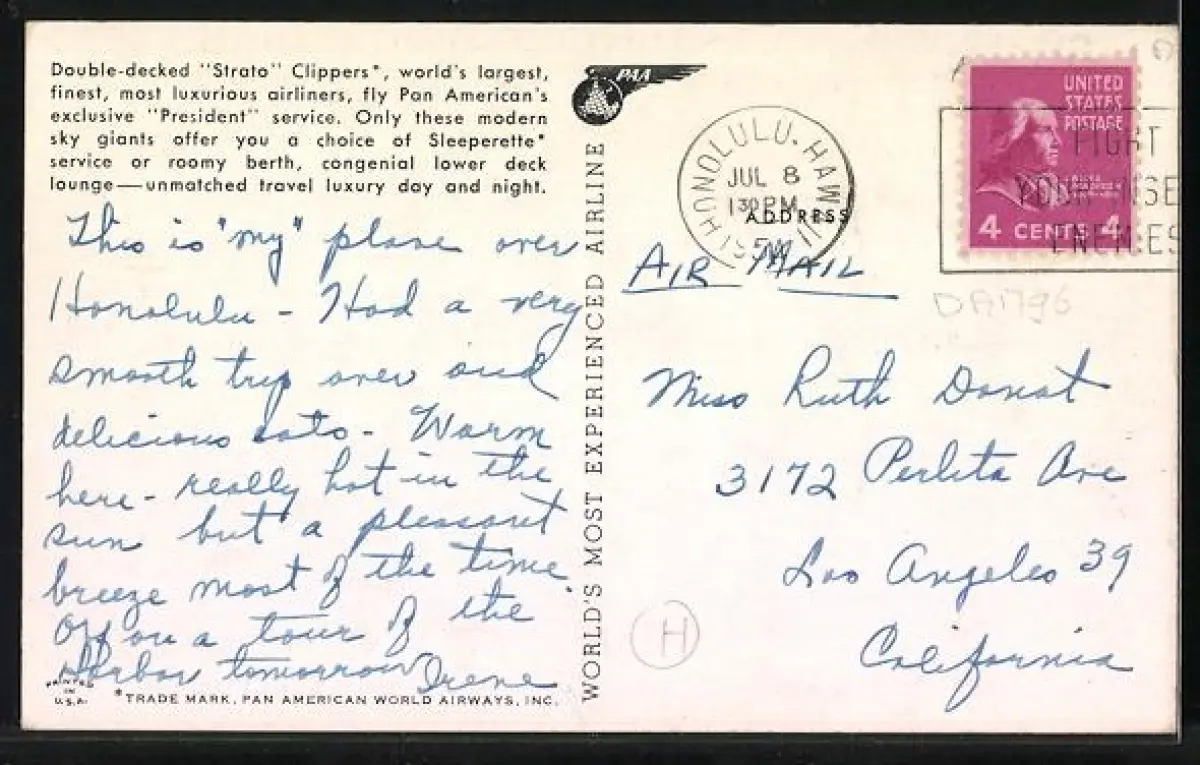 Double-decked "Strato" Clippers*, world's largest,
finest, most luxurious airliners, fly Pan American's
exclusive "President" service. Only these modern
sky giants offer you a choice of Sleeperette*
service or roomy berth, congenial lower deck
lounge—unmatched travel luxury day and night.
This is "my" plane over
Honolulu - Had a very
smooth trip over and
delicious eats - Warm
here - really hot in the
sun but a pleasant
breeze most of the time.
Off on a tour of the
Harbor tomorrow Irene
PRINTED
IN
U.S.A.
*TRADE MARK, PAN AMERICAN WORLD AIRWAYS, INC.
WORLD'S MOST EXPERIENCED AIRLINE
PAA
HONOLULU, HAWAII
JUL 8
1 30 PM
ADDRESS
UNITED
STATES
POSTAGE
4 CENTS 4
FIGHT
ENEMIES
DA1796
AIR MAIL
Miss Ruth Donat
3172 Perlita Ave
Los Angeles 39
California
H